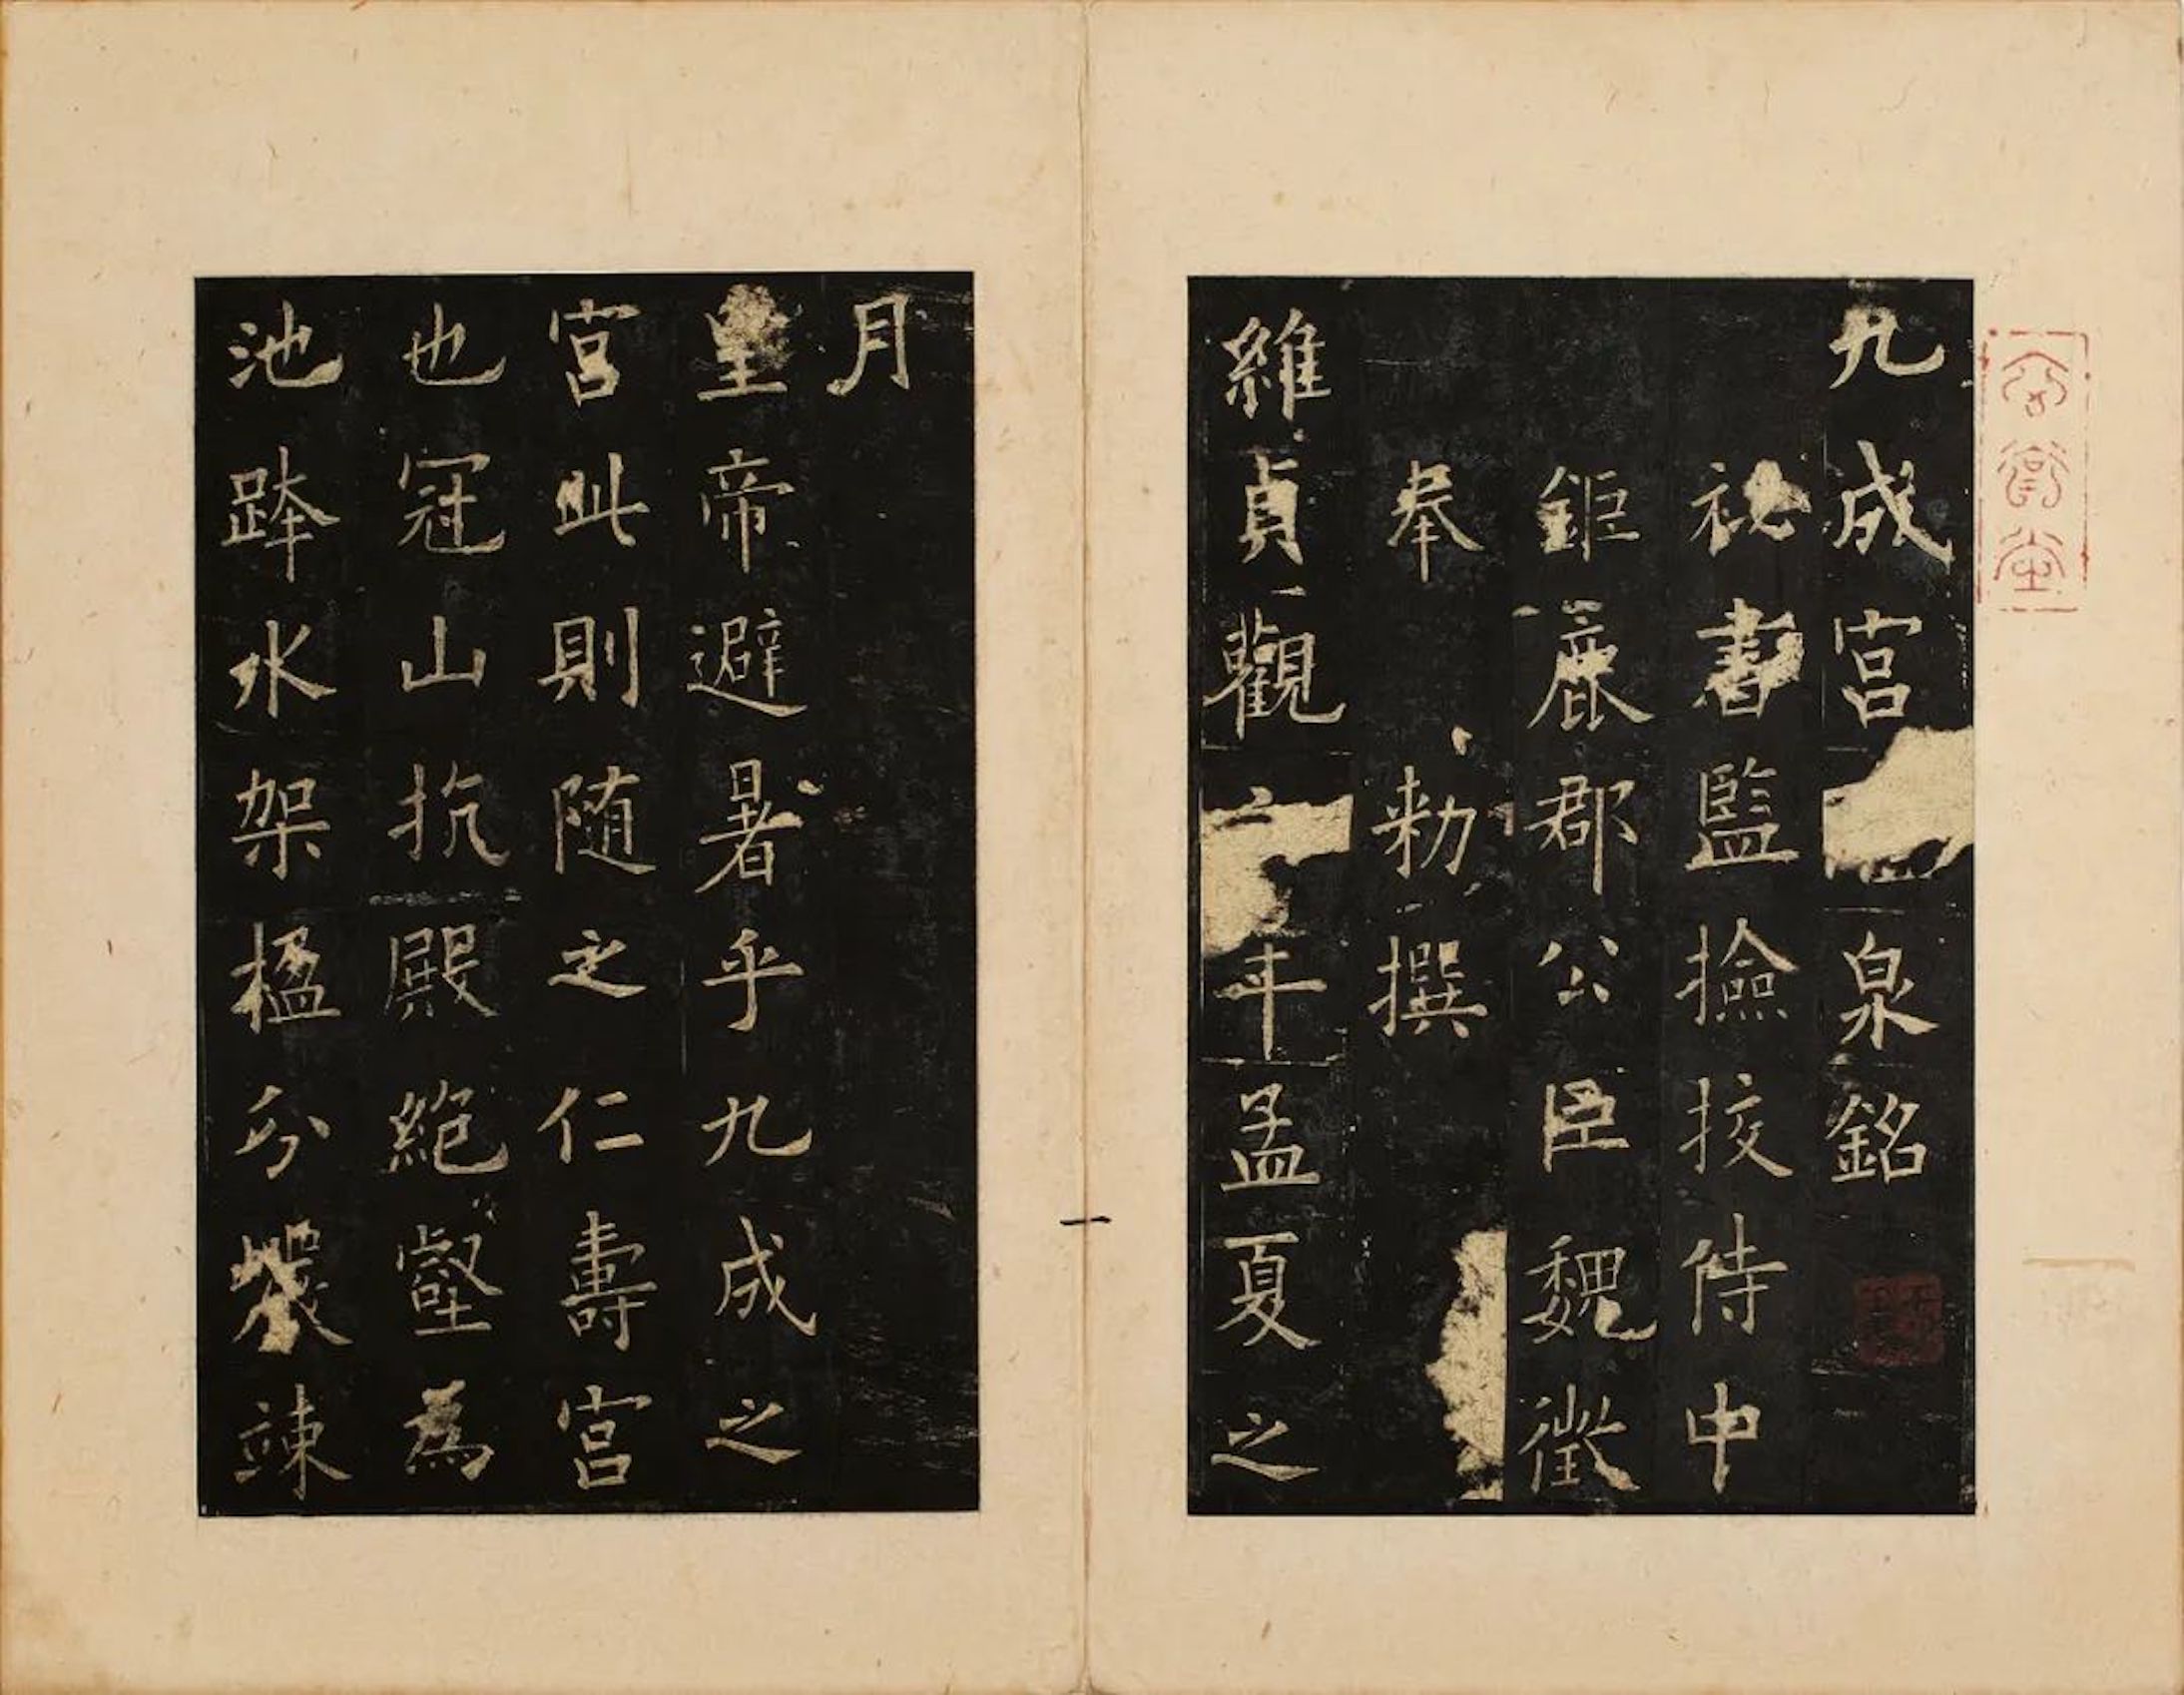 九成宮泉銘
祕書監撿挍侍中
鉅鹿郡公臣魏徵
奉勑撰
維貞觀六年孟夏之
月
皇帝避暑乎九成之
宮此則随之仁壽宮
也冠山抗殿絶壑為
池跨水架楹分巖竦